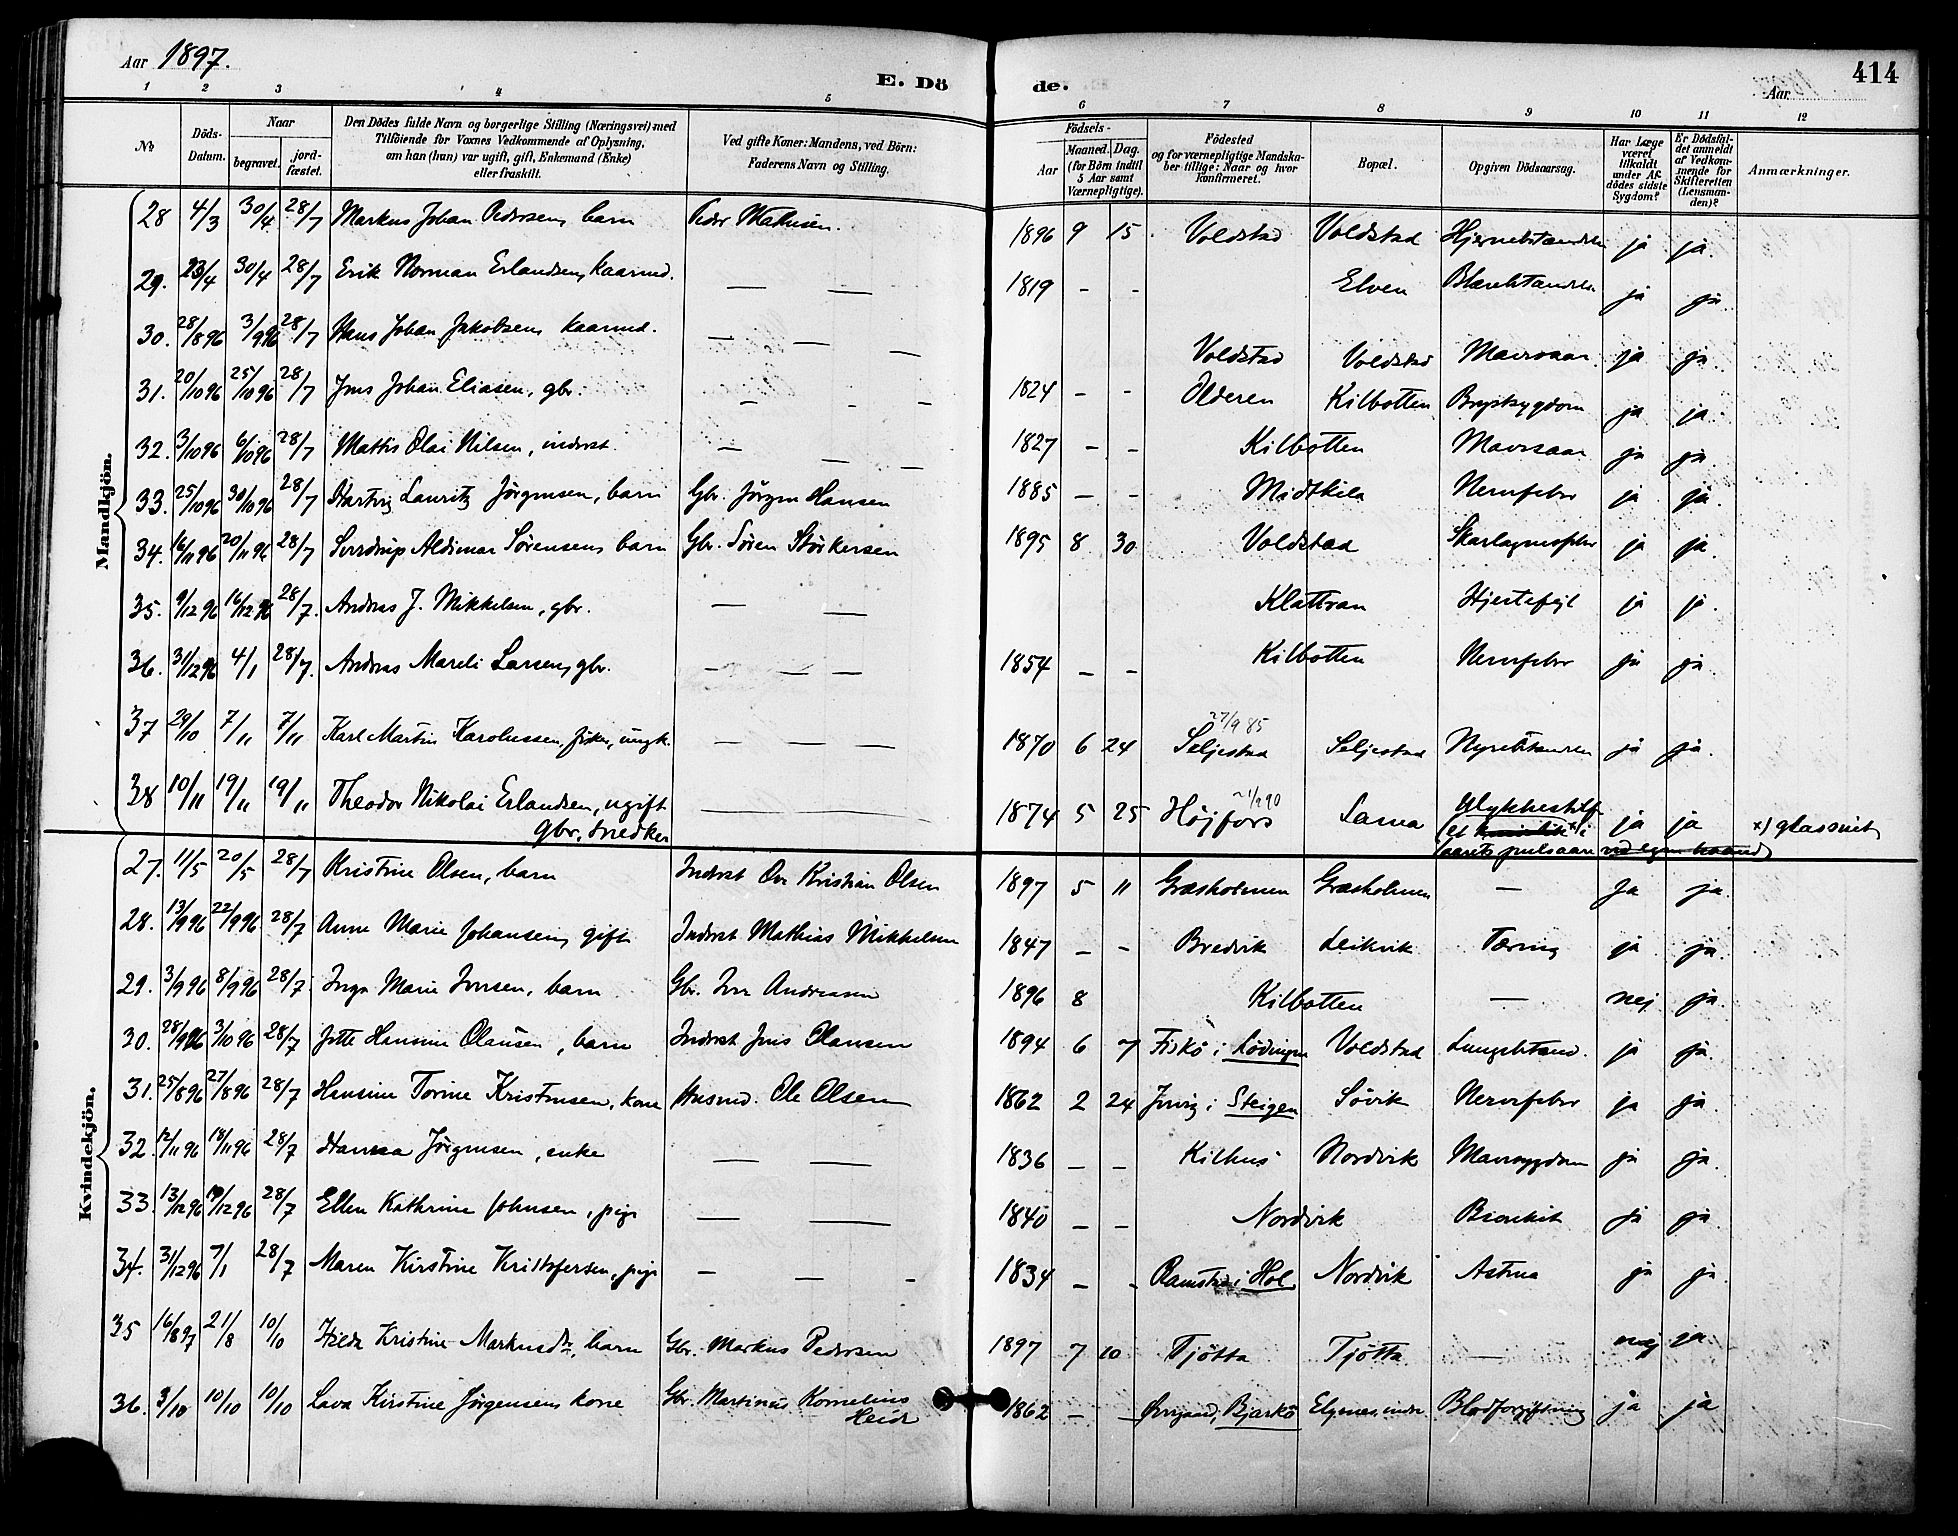 Aar 1897.
E. Döde.
Aar
414
1 2 3 4 5 6 7 8 9 10 11 12
№
Döds-Datum.
Naar
begravet.
jord-fæstet.
Den Dödes fulde Navn og borgerlige Stilling (Næringsvei) med
Tilföiende for Voxnes Vedkommende af Oplysning,
om han (hun) var ugift, gift, Enkemand (Enke)
eller fraskilt.
Ved gifte Koner: Mandens, ved Börn:
Faderens Navn og Stilling.
Födsels-
Aar
Maaned. Dag.
(for Börn indtil
5 Aar samt
Værnepligtige).
Födested
og for værnepligtige Mandska-
ber tillige: Naar og hvor
konfirmeret.
Bopæl.
Opgiven Dödsaarsag.
Har Læge
været
tilkaldt
under Af-
dödes sidste
Sygdom?
Er Dödsfal-
det anmeldt
af Vedkom-
mende for
Skifteretten
(Lensman-
den)?
Anmærkninger.
Mandkjön.
28 4/3 30/4 28/7 Markus Johan Pedersen, barn Peder Mathisen. 1896 9 15 Voldstad Voldstad Hjernebetændelse ja ja.
29. 23/4 30/4 28/7 Erik Norman Erlandsen, kaarmd. — — 1819 - - Elven Blærebetændelse ja ja
30. 28/8 96 3/9 96 28/7 Hans Johan Jakobsen, kaarmd. — — — Voldstad Voldstad Mavesaar ja ja
31. 20/10 96 25/10 96 28/7 Jens Johan Eliasen, gbr. — - — 1824 - - Olderen Kilbotten Brystsygdom ja ja.
32. 3/10 96 6/10 96 28/7 Mattis Olai Nilsen, inderst. — — — — 1827 - - Kilbotten Mavesaar ja ja
33. 25/10 96 30/10 96 28/7 Hartvig Lauritz Jørgensen, barn Gbr. Jørgen Hansen 1885 - - Midtkila Nervefeber ja ja.
34. 16/11 96 20/11 96 28/7 Sverdrup Aldimar Sørensen, barn Gbr. Søren Størkersen 1895 8 30 Voldstad Skarlagensfeber ja ja
35. 9/12 96 16/12 96 28/7. Andreas J. Mikkelsen, gbr. — — Klattran Hjertefejl ja ja.
36. 31/12 96 4/1 28/7. Andreas Mareli Larsen, gbr. — — — 1854 - - Kilbotten Nervefeber ja ja.
37 29/10 7/11 7/11 Karl Martin Karolussen, fisker, ungk. — — — 1870 6 24 27/9 85 Seljestad Seljestad Nyrebetændelse ja ja.
38 10/11 19/11 19/11 Theodor Nikolai Erlandsen, ugift
gbr., snedker
1874 5 25 Højfors Sama Ulykkestilf. ja ja x) glassnit
Kvindekjön.
27. 11/5 20/5 28/7 Kristine Olsen, barn Inderst Ove Kristian Olsen 1897 5 11 Græsholmen Græsholmen — Ja ja.
28. 13/9 96 22/9 96 28/7 Anne Marie Johansen, gift Inderst Mathias Mikkelsen 1847 - - Bredvik Leikvik Tæring ja ja.
29. 3/9 96 8/9 96 28/7 Inga Marie Iversen, barn Gbr. Iver Andreasen 1896 8 Kilbotten — nej ja.
30. 28/9 96 3/10 96 28/7 Jette Hansine Olausen, barn Inderst Jens Olausen 1894 6 7 Fiskø i Lødingen Voldstad Lungebetænd. ja ja.
31. 25/8 96 27/8 96 28/7 Hansine Torine Kristensen, kone Husmd. Ole Olsen 1862 2 24 Jervig i Steigen Søvik Nervefeber ja ja
32. 12/11 96 18/11 96 28/7 Hanna Jørgensen, enke — — 1836 - - Kilhus Nordvik Mavesygdom ja ja.
33. 13/12 96 19/12 96 28/7 Ellen Kathrine Johnsen, pige — — 1840 - - Nordvik Bronkit ja ja.
34. 31/12 96 7/1 28/7 Maren Kirstine Kristofersen, pige — — - 1834 - - Ramstad i Hol Nordvik Astma ja ja.
35 16/8 97 21/8 10/10 Hilda Kristine Markusdtr, barn Gbr. Markus Pedersen 1897 7 10 Tjøtta Tjøtta — nej ja
36. 3/10 10/10 10/10 Lava Kirstine Jørgensen, kone Gbr. Martinus Kornelius
Heide
1862 - - Øvergaard, Bjarkö Elgenes indre Blodforgiftning ja ja